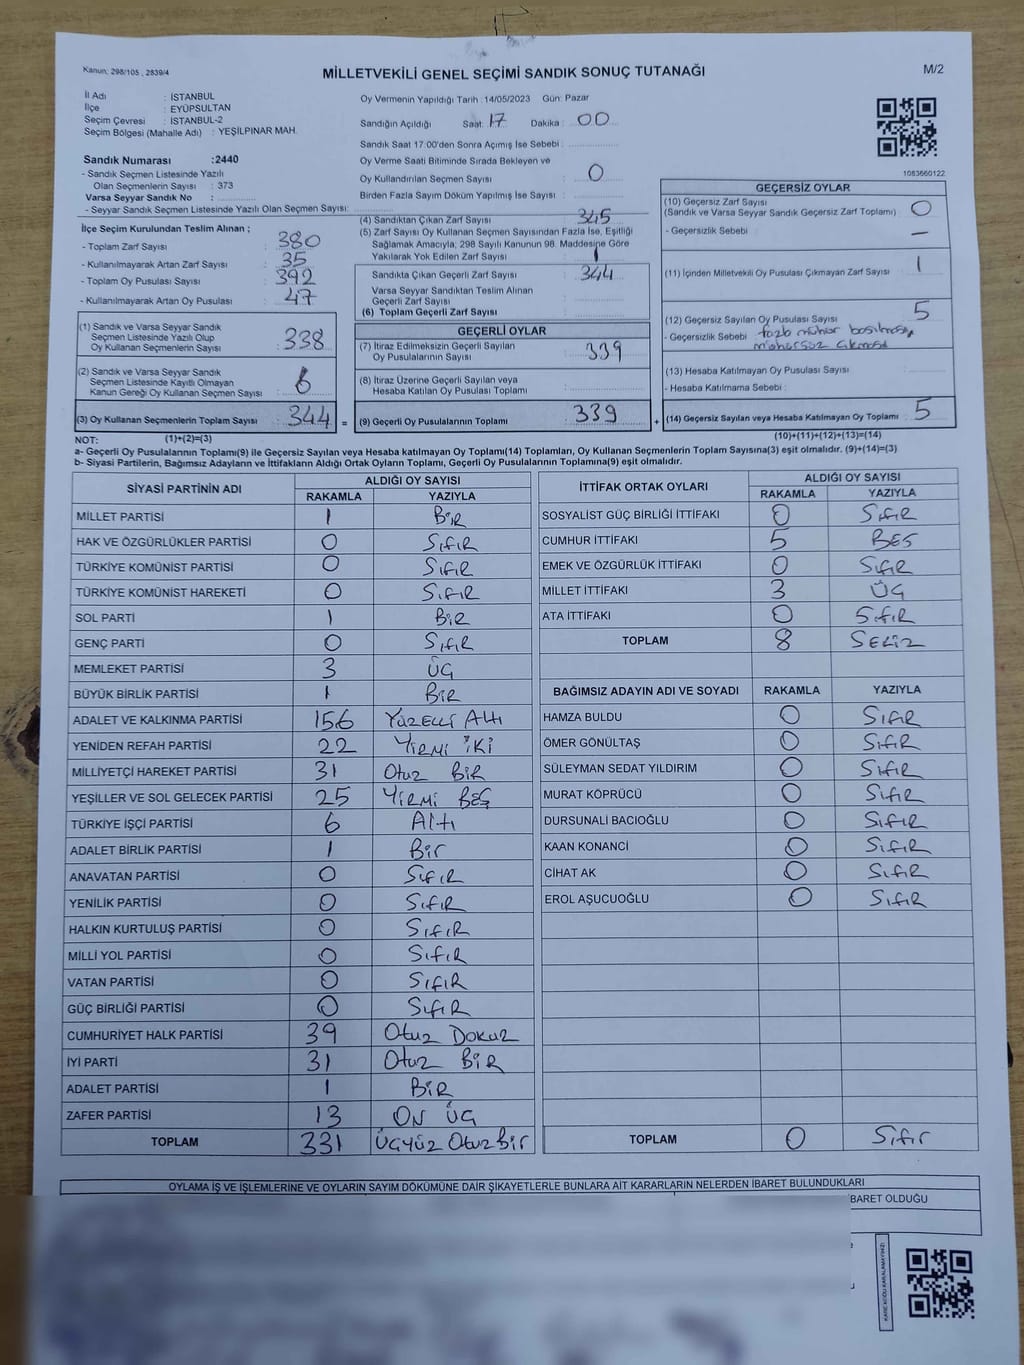 Kanun: 298/105 , 2839/4
MİLLETVEKİLİ GENEL SEÇİMİ SANDIK SONUÇ TUTANAĞI
M/2
İl Adı : İSTANBUL
İlçe : EYÜPSULTAN
Seçim Çevresi : İSTANBUL-2
Seçim Bölgesi (Mahalle Adı) : YEŞİLPINAR MAH.
Sandık Numarası :2440
- Sandık Seçmen Listesinde Yazılı
Olan Seçmenlerin Sayısı : 373
Varsa Seyyar Sandık No :
- Seyyar Sandık Seçmen Listesinde Yazılı Olan Seçmen Sayısı:
İlçe Seçim Kurulundan Teslim Alınan ;
- Toplam Zarf Sayısı : 380
- Kullanılmayarak Artan Zarf Sayısı : 35
- Toplam Oy Pusulası Sayısı : 392
- Kullanılmayarak Artan Oy Pusulası : 47
(1) Sandık ve Varsa Seyyar Sandık
Seçmen Listesinde Yazılı Olup
Oy Kullanan Seçmenlerin Sayısı : 338
(2) Sandık ve Varsa Seyyar Sandık
Seçmen Listesinde Kayıtlı Olmayan
Kanun Gereği Oy Kullanan Seçmen Sayısı : 6
(3) Oy Kullanan Seçmenlerin Toplam Sayısı : 344 =
Oy Vermenin Yapıldığı Tarih : 14/05/2023 Gün: Pazar
Sandığın Açıldığı Saat: 17 Dakika : 00
Sandık Saat 17:00'den Sonra Açımış İse Sebebi :
Oy Verme Saati Bitiminde Sırada Bekleyen ve
Oy Kullandırılan Seçmen Sayısı : 0
Birden Fazla Sayım Döküm Yapılmış İse Sayısı :
(4) Sandıktan Çıkan Zarf Sayısı : 345
(5) Zarf Sayısı Oy Kullanan Seçmen Sayısından Fazla İse, Eşitliği
Sağlamak Amacıyla; 298 Sayılı Kanunun 98. Maddesine Göre
Yakılarak Yok Edilen Zarf Sayısı : 1
Sandıkta Çıkan Geçerli Zarf Sayısı : 344
Varsa Seyyar Sandıktan Teslim Alınan
Geçerli Zarf Sayısı :
(6) Toplam Geçerli Zarf Sayısı :
GEÇERLİ OYLAR
(7) İtiraz Edilmeksizin Geçerli Sayılan
Oy Pusulalarının Sayısı : 339
(8) İtiraz Üzerine Geçerli Sayılan veya
Hesaba Katılan Oy Pusulası Toplamı :
(9) Geçerli Oy Pusulalarının Toplamı : 339 +
1083660122
GEÇERSİZ OYLAR
(10) Geçersiz Zarf Sayısı
(Sandık ve Varsa Seyyar Sandık Geçersiz Zarf Toplamı) : 0
- Geçersizlik Sebebi : —
(11) İçinden Milletvekili Oy Pusulası Çıkmayan Zarf Sayısı : 1
(12) Geçersiz Sayılan Oy Pusulası Sayısı : 5
- Geçersizlik Sebebi : fazla mühür basılması
mühürsüz çıkması
(13) Hesaba Katılmayan Oy Pusulası Sayısı :
- Hesaba Katılmama Sebebi :
(14) Geçersiz Sayılan veya Hesaba Katılmayan Oy Toplamı : 5
NOT: (1)+(2)=(3)
(10)+(11)+(12)+(13)=(14)
a- Geçerli Oy Pusulalarının Toplamı(9) ile Geçersiz Sayılan veya Hesaba katılmayan Oy Toplamı(14) Toplamları, Oy Kullanan Seçmenlerin Toplam Sayısına(3) eşit olmalıdır. (9)+(14)=(3)
b- Siyasi Partilerin, Bağımsız Adayların ve İttifakların Aldığı Ortak Oyların Toplamı, Geçerli Oy Pusulalarının Toplamına(9) eşit olmalıdır.
SİYASİ PARTİNİN ADI ALDIĞI OY SAYISI
RAKAMLA YAZIYLA
MİLLET PARTİSİ 1 BİR
HAK VE ÖZGÜRLÜKLER PARTİSİ 0 SıfıR
TÜRKİYE KOMÜNİST PARTİSİ 0 SıfıR
TÜRKİYE KOMÜNİST HAREKETİ 0 SıfıR
SOL PARTİ 1 BİR
GENÇ PARTİ 0 SıfıR
MEMLEKET PARTİSİ 3 ÜÇ
BÜYÜK BİRLİK PARTİSİ 1 BİR
ADALET VE KALKINMA PARTİSİ 156 YÜZELLİ Altı
YENİDEN REFAH PARTİSİ 22 YİRMİ İKİ
MİLLİYETÇİ HAREKET PARTİSİ 31 Otuz BİR
YEŞİLLER VE SOL GELECEK PARTİSİ 25 YİRMİ BEŞ
TÜRKİYE İŞÇİ PARTİSİ 6 Altı
ADALET BİRLİK PARTİSİ 1 Bir
ANAVATAN PARTİSİ 0 SıfıR
YENİLİK PARTİSİ 0 SıfıR
HALKIN KURTULUŞ PARTİSİ 0 SıfıR
MİLLİ YOL PARTİSİ 0 SıfıR
VATAN PARTİSİ 0 SıfıR
GÜÇ BİRLİĞİ PARTİSİ 0 SıfıR
CUMHURİYET HALK PARTİSİ 39 Otuz DOKUZ
İYİ PARTİ 31 Otuz BİR
ADALET PARTİSİ 1 BİR
ZAFER PARTİSİ 13 ON ÜÇ
TOPLAM 331 ÜÇYÜZ Otuz Bir
İTTİFAK ORTAK OYLARI ALDIĞI OY SAYISI
RAKAMLA YAZIYLA
SOSYALİST GÜÇ BİRLİĞİ İTTİFAKI 0 SıfıR
CUMHUR İTTİFAKI 5 BEŞ
EMEK VE ÖZGÜRLÜK İTTİFAKI 0 SıfıR
MİLLET İTTİFAKI 3 ÜÇ
ATA İTTİFAKI 0 SıfıR
TOPLAM 8 SEKİZ
BAĞIMSIZ ADAYIN ADI VE SOYADI RAKAMLA YAZIYLA
HAMZA BULDU 0 SıfıR
ÖMER GÖNÜLTAŞ 0 SıfıR
SÜLEYMAN SEDAT YILDIRIM 0 SıfıR
MURAT KÖPRÜCÜ 0 SıfıR
DURSUNALİ BACIOĞLU 0 SıfıR
KAAN KONANCİ 0 SıfıR
CİHAT AK 0 SıfıR
EROL AŞUCUOĞLU 0 SıfıR
TOPLAM 0 Sıfır
OYLAMA İŞ VE İŞLEMLERİNE VE OYLARIN SAYIM DÖKÜMÜNE DAİR ŞİKAYETLERLE BUNLARA AİT KARARLARIN NELERDEN İBARET BULUNDUKLARI
BARET OLDUĞU